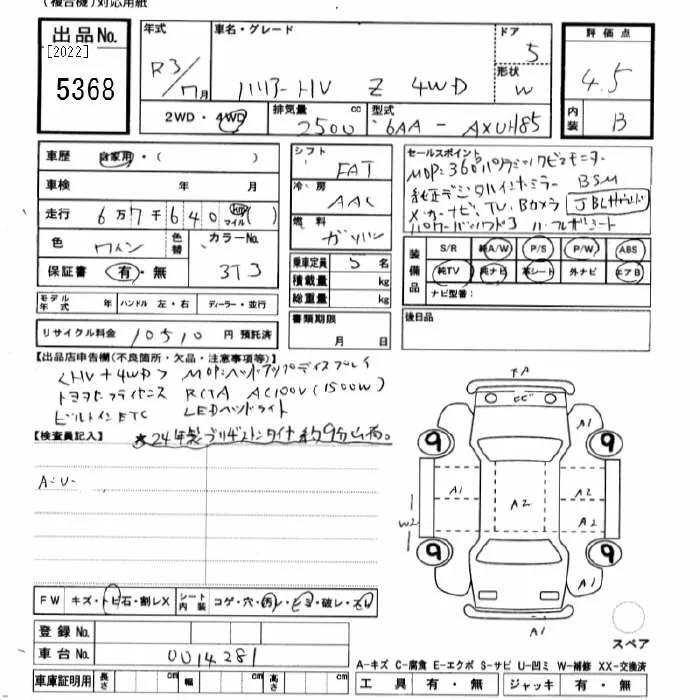 (複合機)対応用紙
出品No.
[2022]
5368
年式 R3/7月
車名・グレード ハリアーHV Z 4WD
ドア 5
形状 W
評価点 4.5
内装 B
2WD・4WD
排気量 2500 cc
型式 6AA-AXUH85
車歴 自家用・( )
車検 年 月
走行 6万7千640 km マイル ( )
色 ワイン 色替 カラーNo. 3T3
保証書 有・無
シフト FAT
冷房 AAC
燃料 ガソリン
乗車定員 5 名
積載量 kg
総重量 kg
セールスポイント
MOP:360°パノラミックビューモニター
純正デジタルインナーミラー BSM
メーカーナビ、TV、Bカメラ JBLサウンド
パワーバックドア ハーフレザーシート
装備品 S/R 純A/W P/S P/W ABS
純TV 純ナビ 革シート 外ナビ エアB
ナビ型番:
モデル年式 年 ハンドル 左・右 ディーラー・並行
リサイクル料金 10510 円 預託済
書類期限 月 日
後日品
【出品店申告欄(不良箇所・欠品・注意事項等)】
<HV+4WD> MOP:ヘッドアップディスプレイ
トヨタセーフティセンス RCTA AC100V(1500W)
ビルトインETC LEDヘッドライト
【検査員記入】 ★24年製ブリヂストンタイヤ約9分山有。
A・U-
FW キズ・トビ石・割レX シート内装 コゲ・穴・汚レ・
・破レ・
登録No.
車台No. 0014281
車庫証明用 長さ cm 幅 cm 高さ cm
A1
9 9
A1 A2 A2
W2 A2
9 9
A1
A1
スペア
A-キズ C-腐食 E-エクボ S-サビ U-凹ミ W-補修 XX-交換済
工具 有・無 ジャッキ 有・無